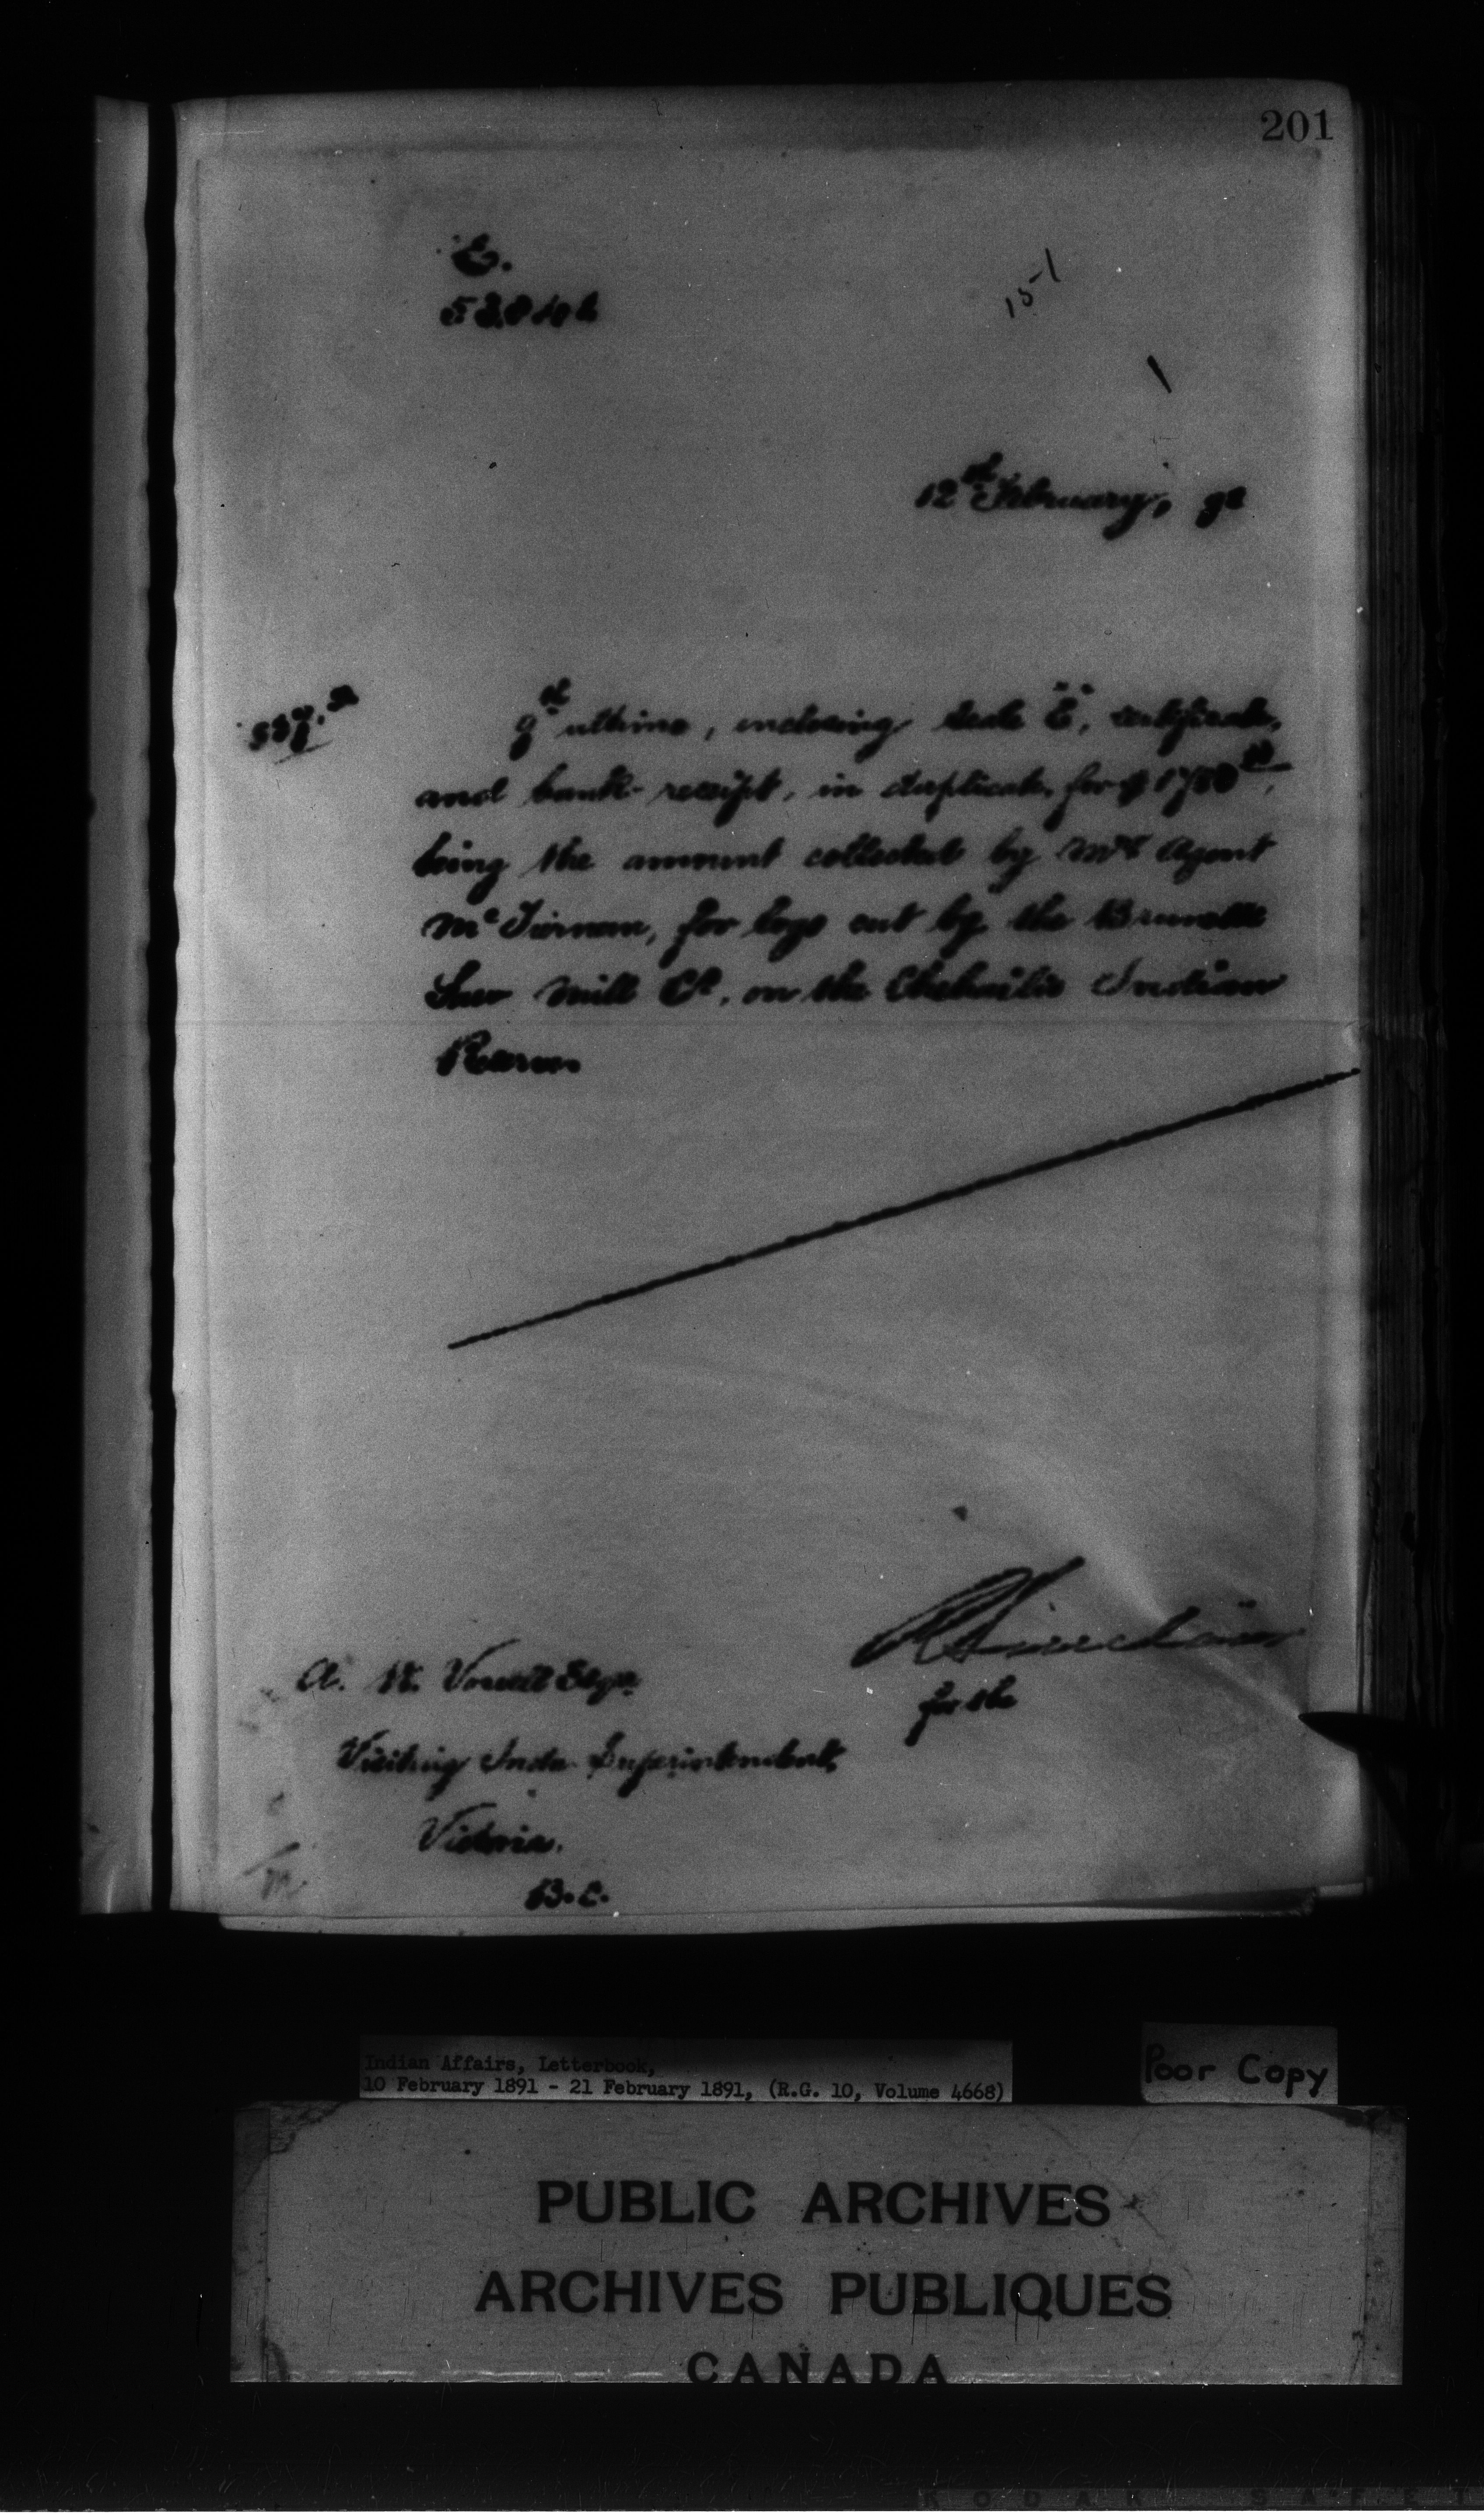 201
E.
151
12th February, 91
9th ultimo, enclosing
and bank receipt, in duplicate, for $
being the amount collected by Mr Agent
McTiernan, for logs cut by the Brunette
Saw Mill Co, on the Chehailis Indian
Reserve
Sinclair
for the
A. W. Vowell Esqre
Visiting Indn Superintendent,
Victoria.
B.C.
Indian Affairs, Letterbook,
10 February 1891 - 21 February 1891, (R.G. 10, Volume 4668)
Poor Copy
PUBLIC ARCHIVES
ARCHIVES PUBLIQUES
CANADA